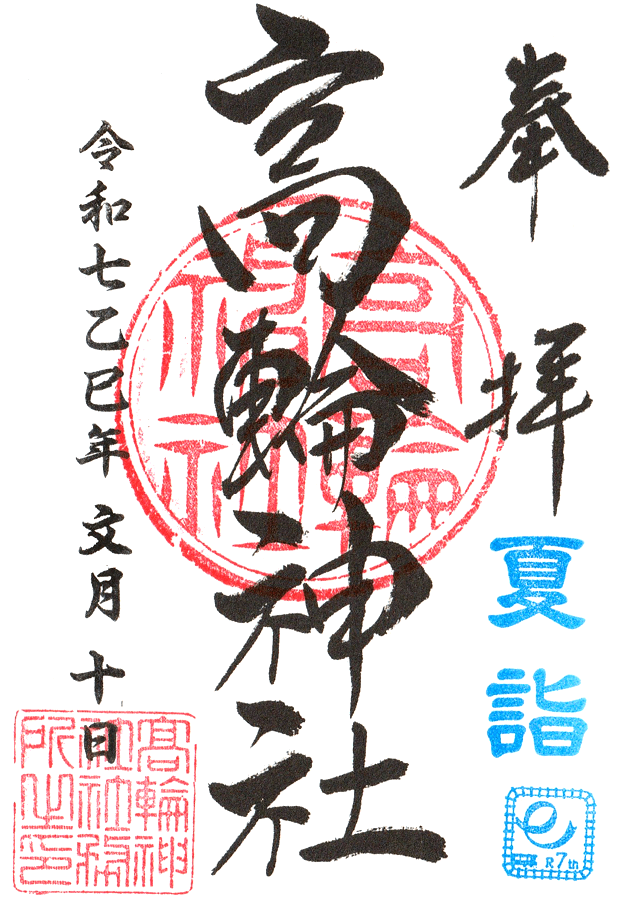 奉拝
夏詣
R7th
高輪神社
高輪神社
令和七乙巳年 文月 十日
高輪神社社務所之印